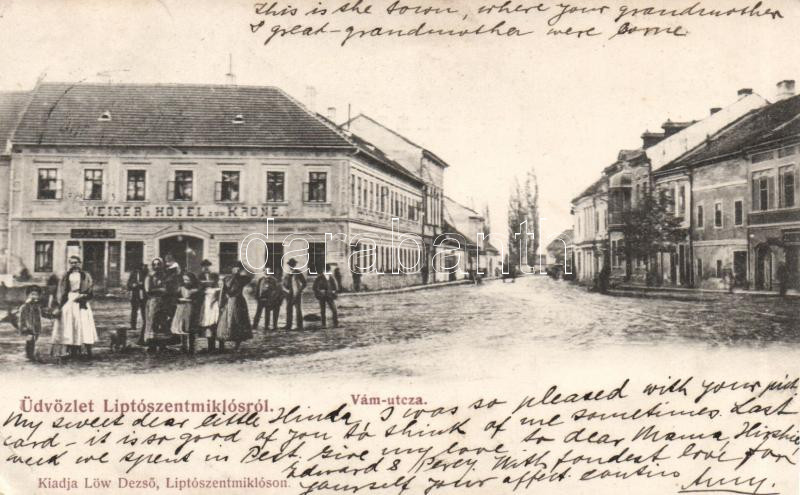 This is the town, where your grandmother
& great-grandmother were borne.
WEISER'S HOTEL ZUR KRONE.
darabanth
Üdvözlet Liptószentmiklósról.
Vám-utcza.
My sweet dear little Hinda, I was so pleased with your pict
card - it is so good of you to think of me sometimes. Last
week we spent in Pest. Give my love to dear Mama,
Edward & Percy. With fondest love for
yourself your affect.
Kiadja Löw Dezső, Liptószentmiklóson.